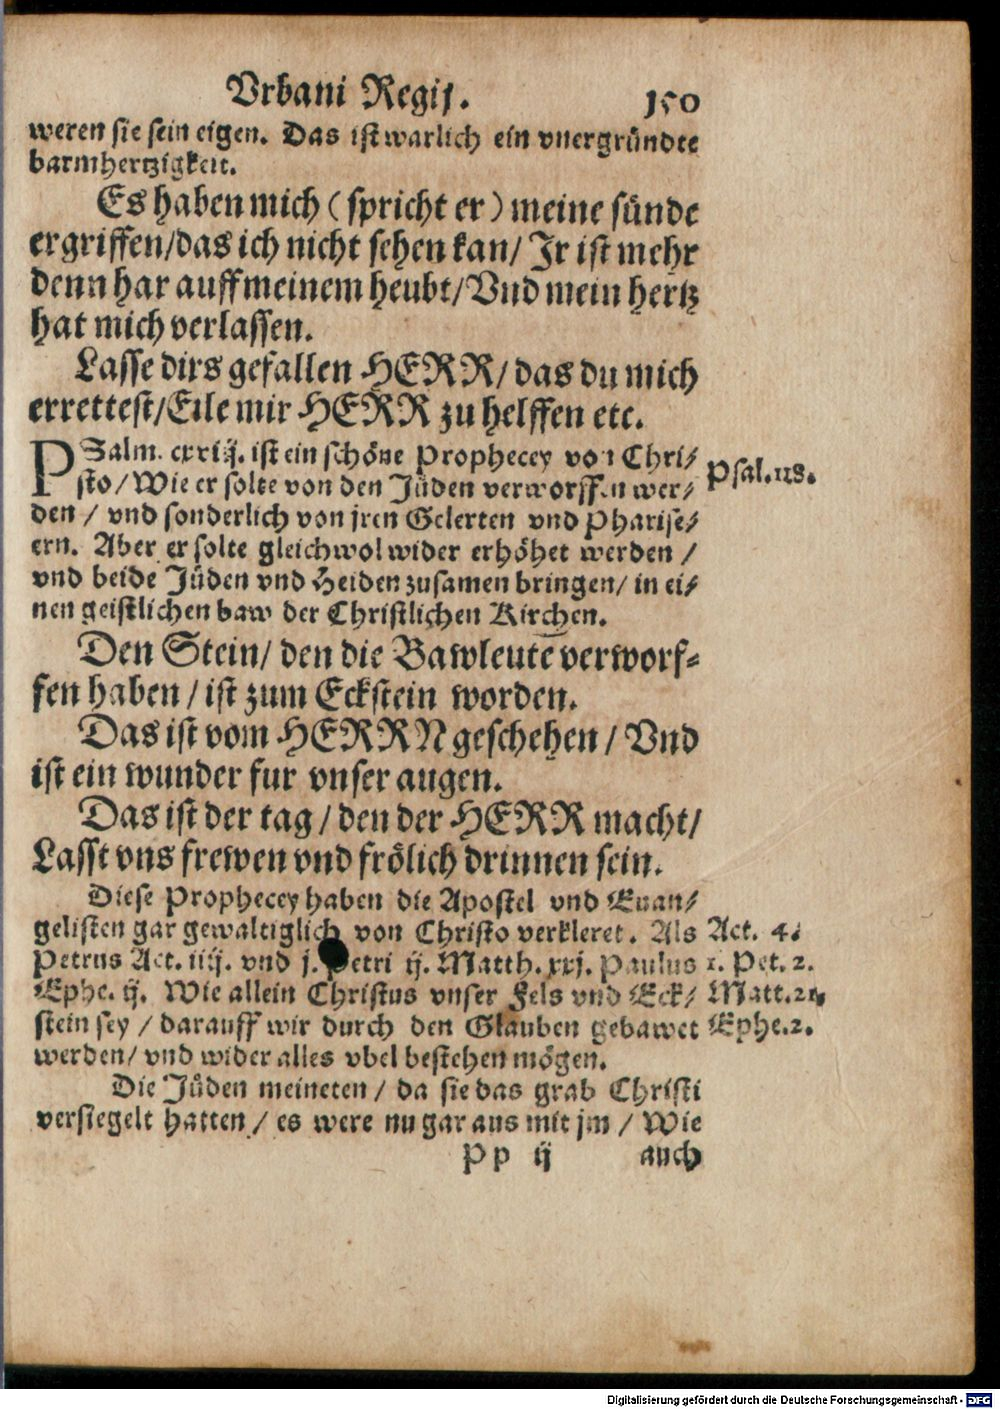 Vrbani Regij. 150
weren sie sein eigen. Das ist warlich ein vnergründte
barmhertzigkeit.
Es haben mich (spricht er) meine sünde
ergriffen/das ich nicht sehen kan/ Jr ist mehr
denn har auff meinem heubt/Vnd mein hertz
hat mich verlassen.
Lasse dirs gefallen HERR/ das du mich
errettest/Eile mir HERR zu helffen etc.
PSalm. cxviij. ist ein schöne Prophecey von Chri/
sto/Wie er solte von den Jüden verworffen wer/
den / vnd sonderlich von jren Gelerten vnd Pharise/
ern. Aber er solte gleichwol wider erhöhet werden /
vnd beide Jüden vnd Heiden zusamen bringen/ in ei/
nen geistlichen baw der Christlichen Kirchen.
Psal.118.
Den Stein/ den die Bawleute verworf-
fen haben / ist zum Eckstein worden.
Das ist vom HERRN geschehen / Vnd
ist ein wunder fur vnser augen.
Das ist der tag / den der HERR macht/
Lasst vns frewen vnd frölich drinnen sein.
Diese Prophecey haben die Apostel vnd Euan/
gelisten gar gewaltiglich von Christo verkleret. Als
Petrus Act. iiij. vnd j. Petri ij. Matth. xxj. Paulus
Ephe. ij. Wie allein Christus vnser Fels vnd Eck/
stein sey / darauff wir durch den Glauben gebawet
werden/ vnd wider alles vbel bestehen mögen.
Act. 4.
1. Pet. 2.
Matt.21.
Ephe.2.
Die Jüden meineten / da sie das grab Christi
versiegelt hatten / es were nu gar aus mit jm / Wie
Pp ij auch
Digitalisierung gefördert durch die Deutsche Forschungsgemeinschaft - DFG